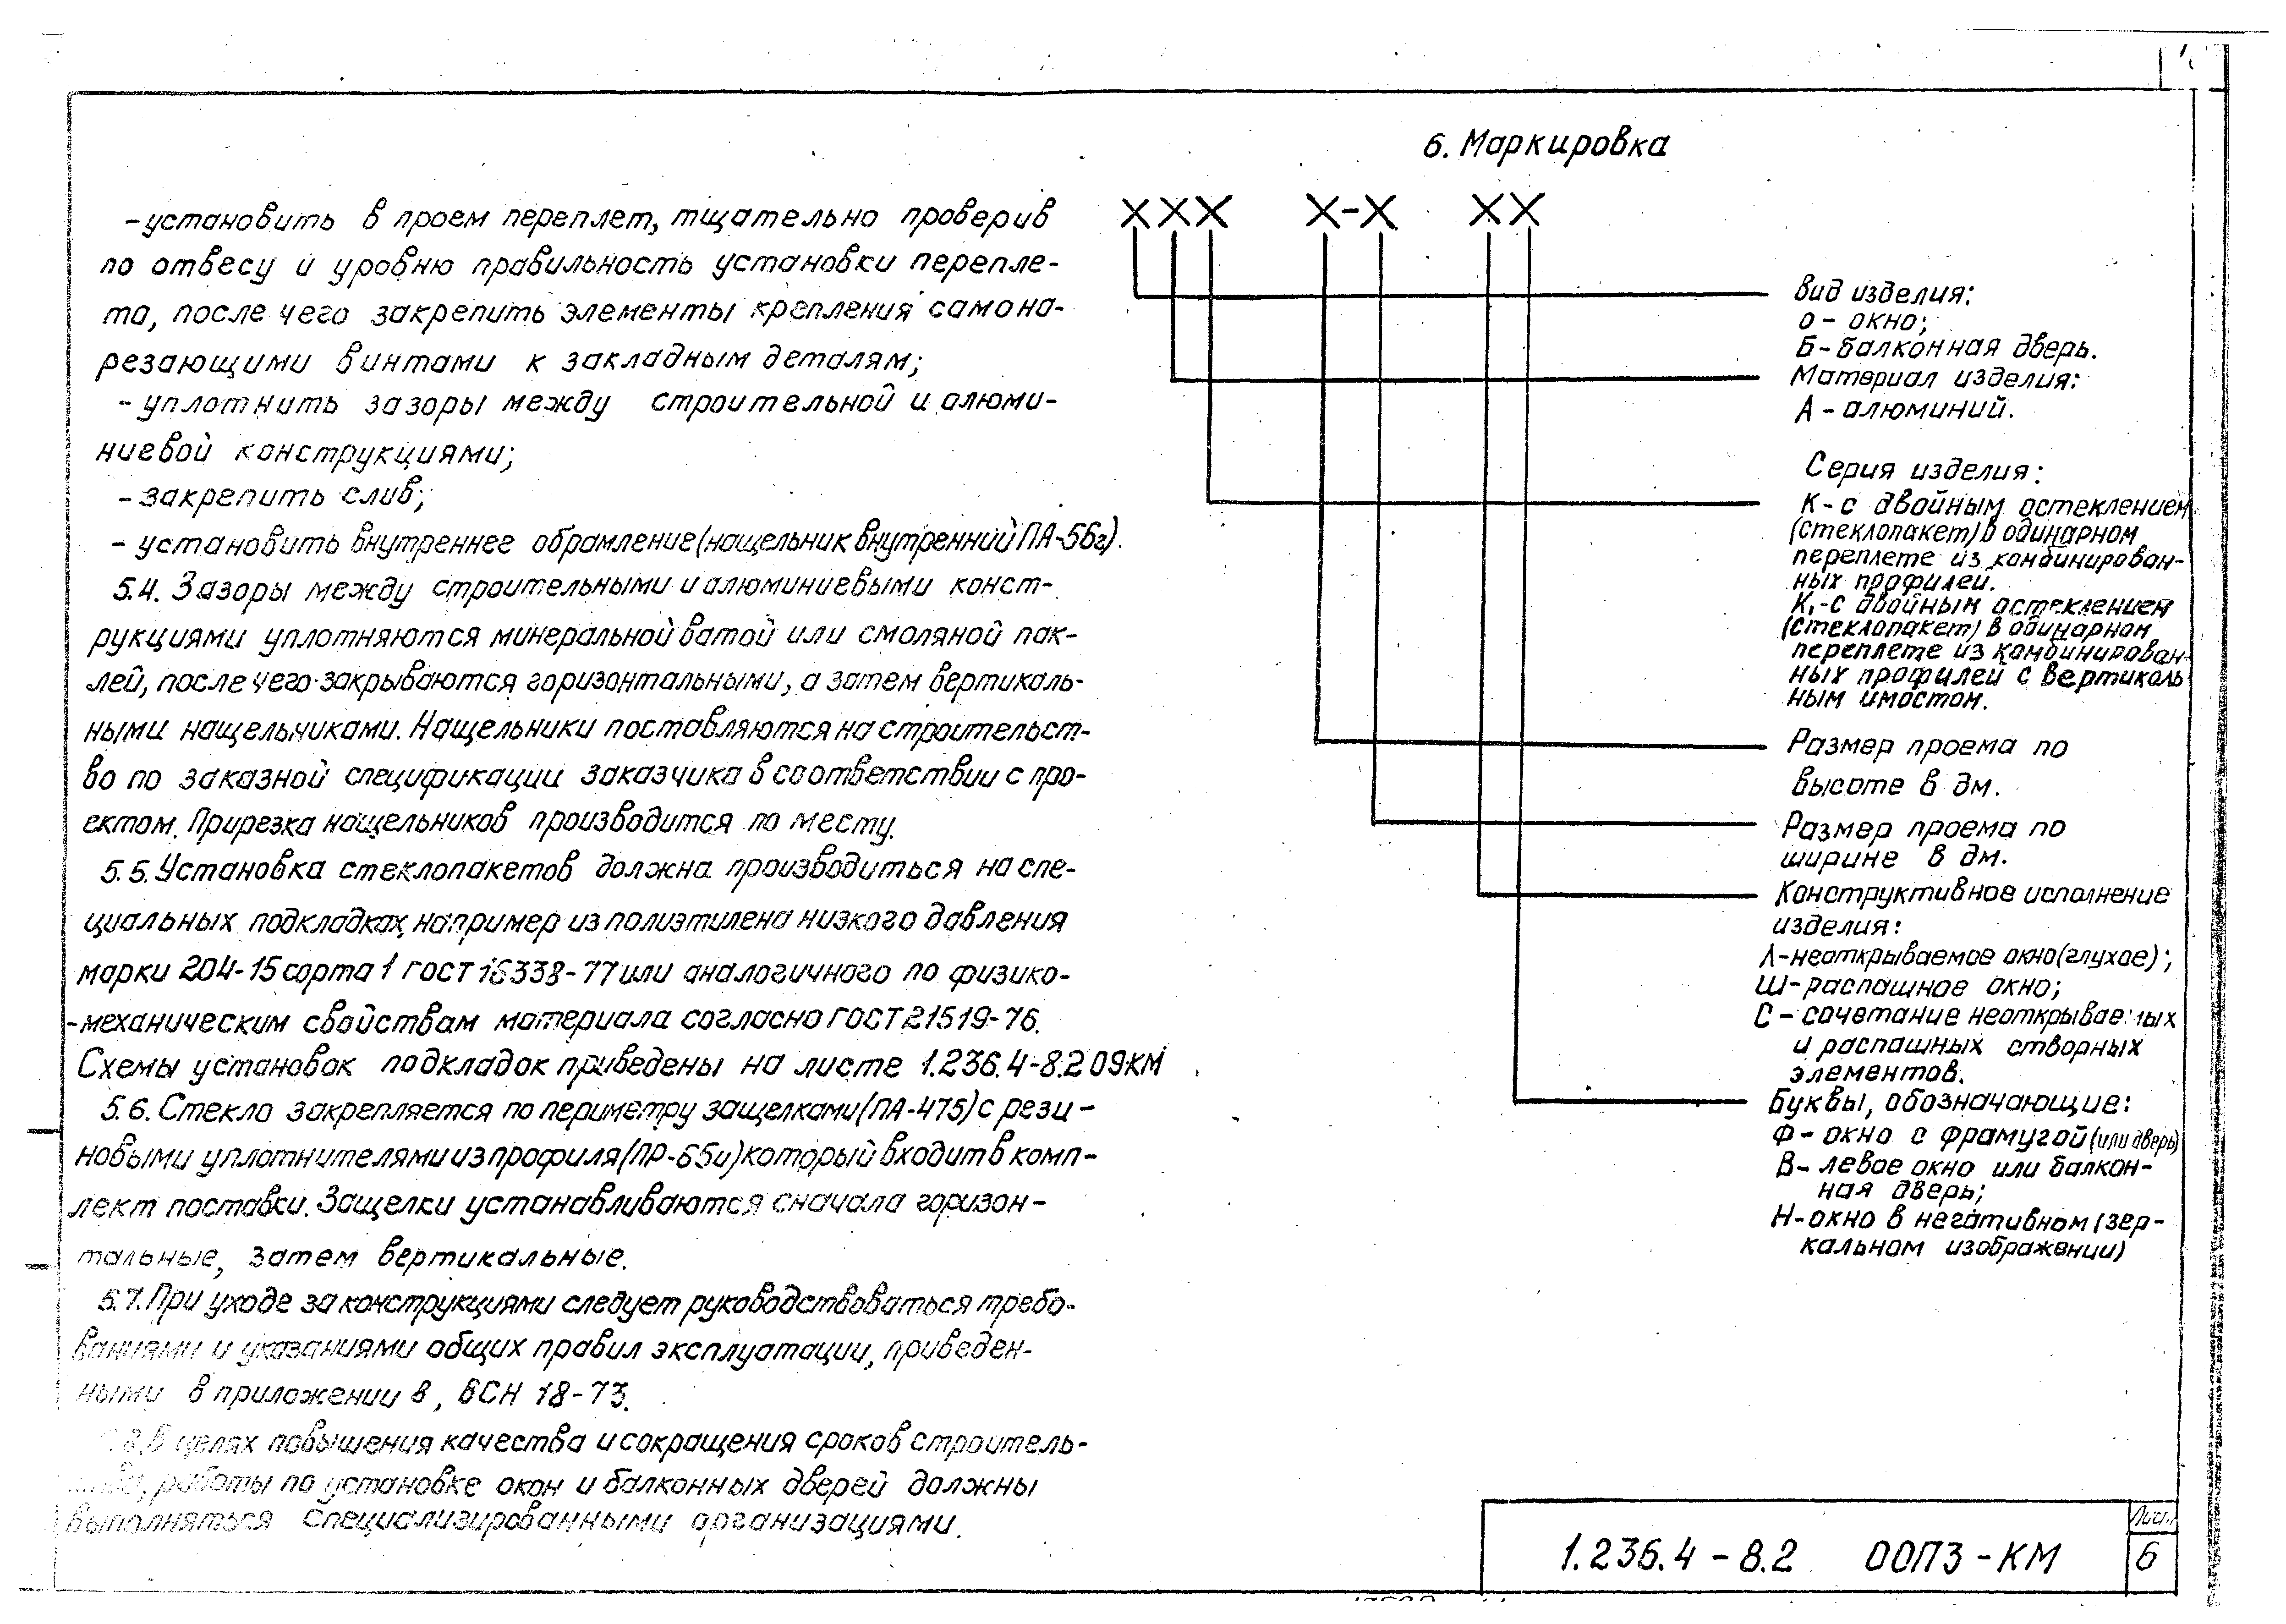 -установить в проем переплет, тщательно проверив
по отвесу и уровню правильность установки перепле-
та, после чего закрепить элементы крепления самона-
резающими винтами к закладным деталям;
-уплотнить зазоры между строительной и алюми-
ниевой конструкциями;
-закрепить слив;
- установить внутреннее обрамление (нащельник внутренний ПА-56г).
5.4. Зазоры между строительными и алюминиевыми конст-
рукциями уплотняются минеральной ватой или смоляной пак-
лей, после чего закрываются горизонтальными, а затем вертикаль-
ными нащельниками. Нащельники поставляются на строительст-
во по заказной спецификации заказчика в соответствии с про-
ектом. Прирезка нащельников производится по месту.
5.5. Установка стеклопакетов должна производиться на спе-
циальных подкладках, например из полиэтилена низкого давления
марки 204-15 сорта 1 ГОСТ 16338-77 или аналогичного по физико-
-механическим свойствам материала согласно ГОСТ 21519-76.
Схемы установок подкладок приведены на листе 1.236.4-8.2 09КМ
5.6. Стекло закрепляется по периметру защелками (ПА-475) с рези-
новыми уплотнителями из профиля (ПР-65и) который входит в комп-
лект поставки. Защелки устанавливаются сначала горизон-
тальные, затем вертикальные.
5.7. При уходе за конструкциями следует руководствоваться требо-
ваниями и указаниями общих правил эксплуатации, приведен-
ными в приложении 8, ВСН 18-73.
8. В целях повышения качества и сокращения сроков строитель-
работы по установке окон и балконных дверей должны
выполняться специализированными организациями.
6. Маркировка
ХХХ Х-Х ХХ
Вид изделия:
О - окно;
Б - балконная дверь.
Материал изделия:
А - алюминий.
Серия изделия:
К - с двойным остеклением
(стеклопакет) в одинарном
переплете из комбинирован-
ных профилей.
К₁ - с двойным остеклением
(стеклопакет) в одинарном
переплете из комбинирован-
ных профилей с вертикаль
ным импостом.
Размер проема по
высоте в дм.
Размер проема по
ширине в дм.
Конструктивное исполнение
изделия:
Л - неоткрываемое окно (глухое);
Ш - распашное окно;
С - сочетание неоткрываемых
и распашных створных
элементов.
Буквы, обозначающие:
Ф - окно с фрамугой (или дверь)
В - левое окно или балкон-
ная дверь;
Н - окно в негативном (зер-
кальном изображении)
1.236.4-8.2 00ПЗ-КМ
Лист
6